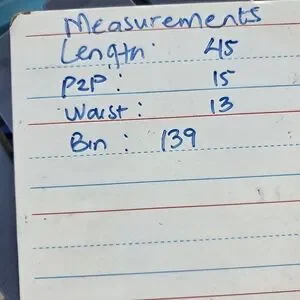 Measurements
Length: 45
P2P: 15
Waist: 13
Bin: 139